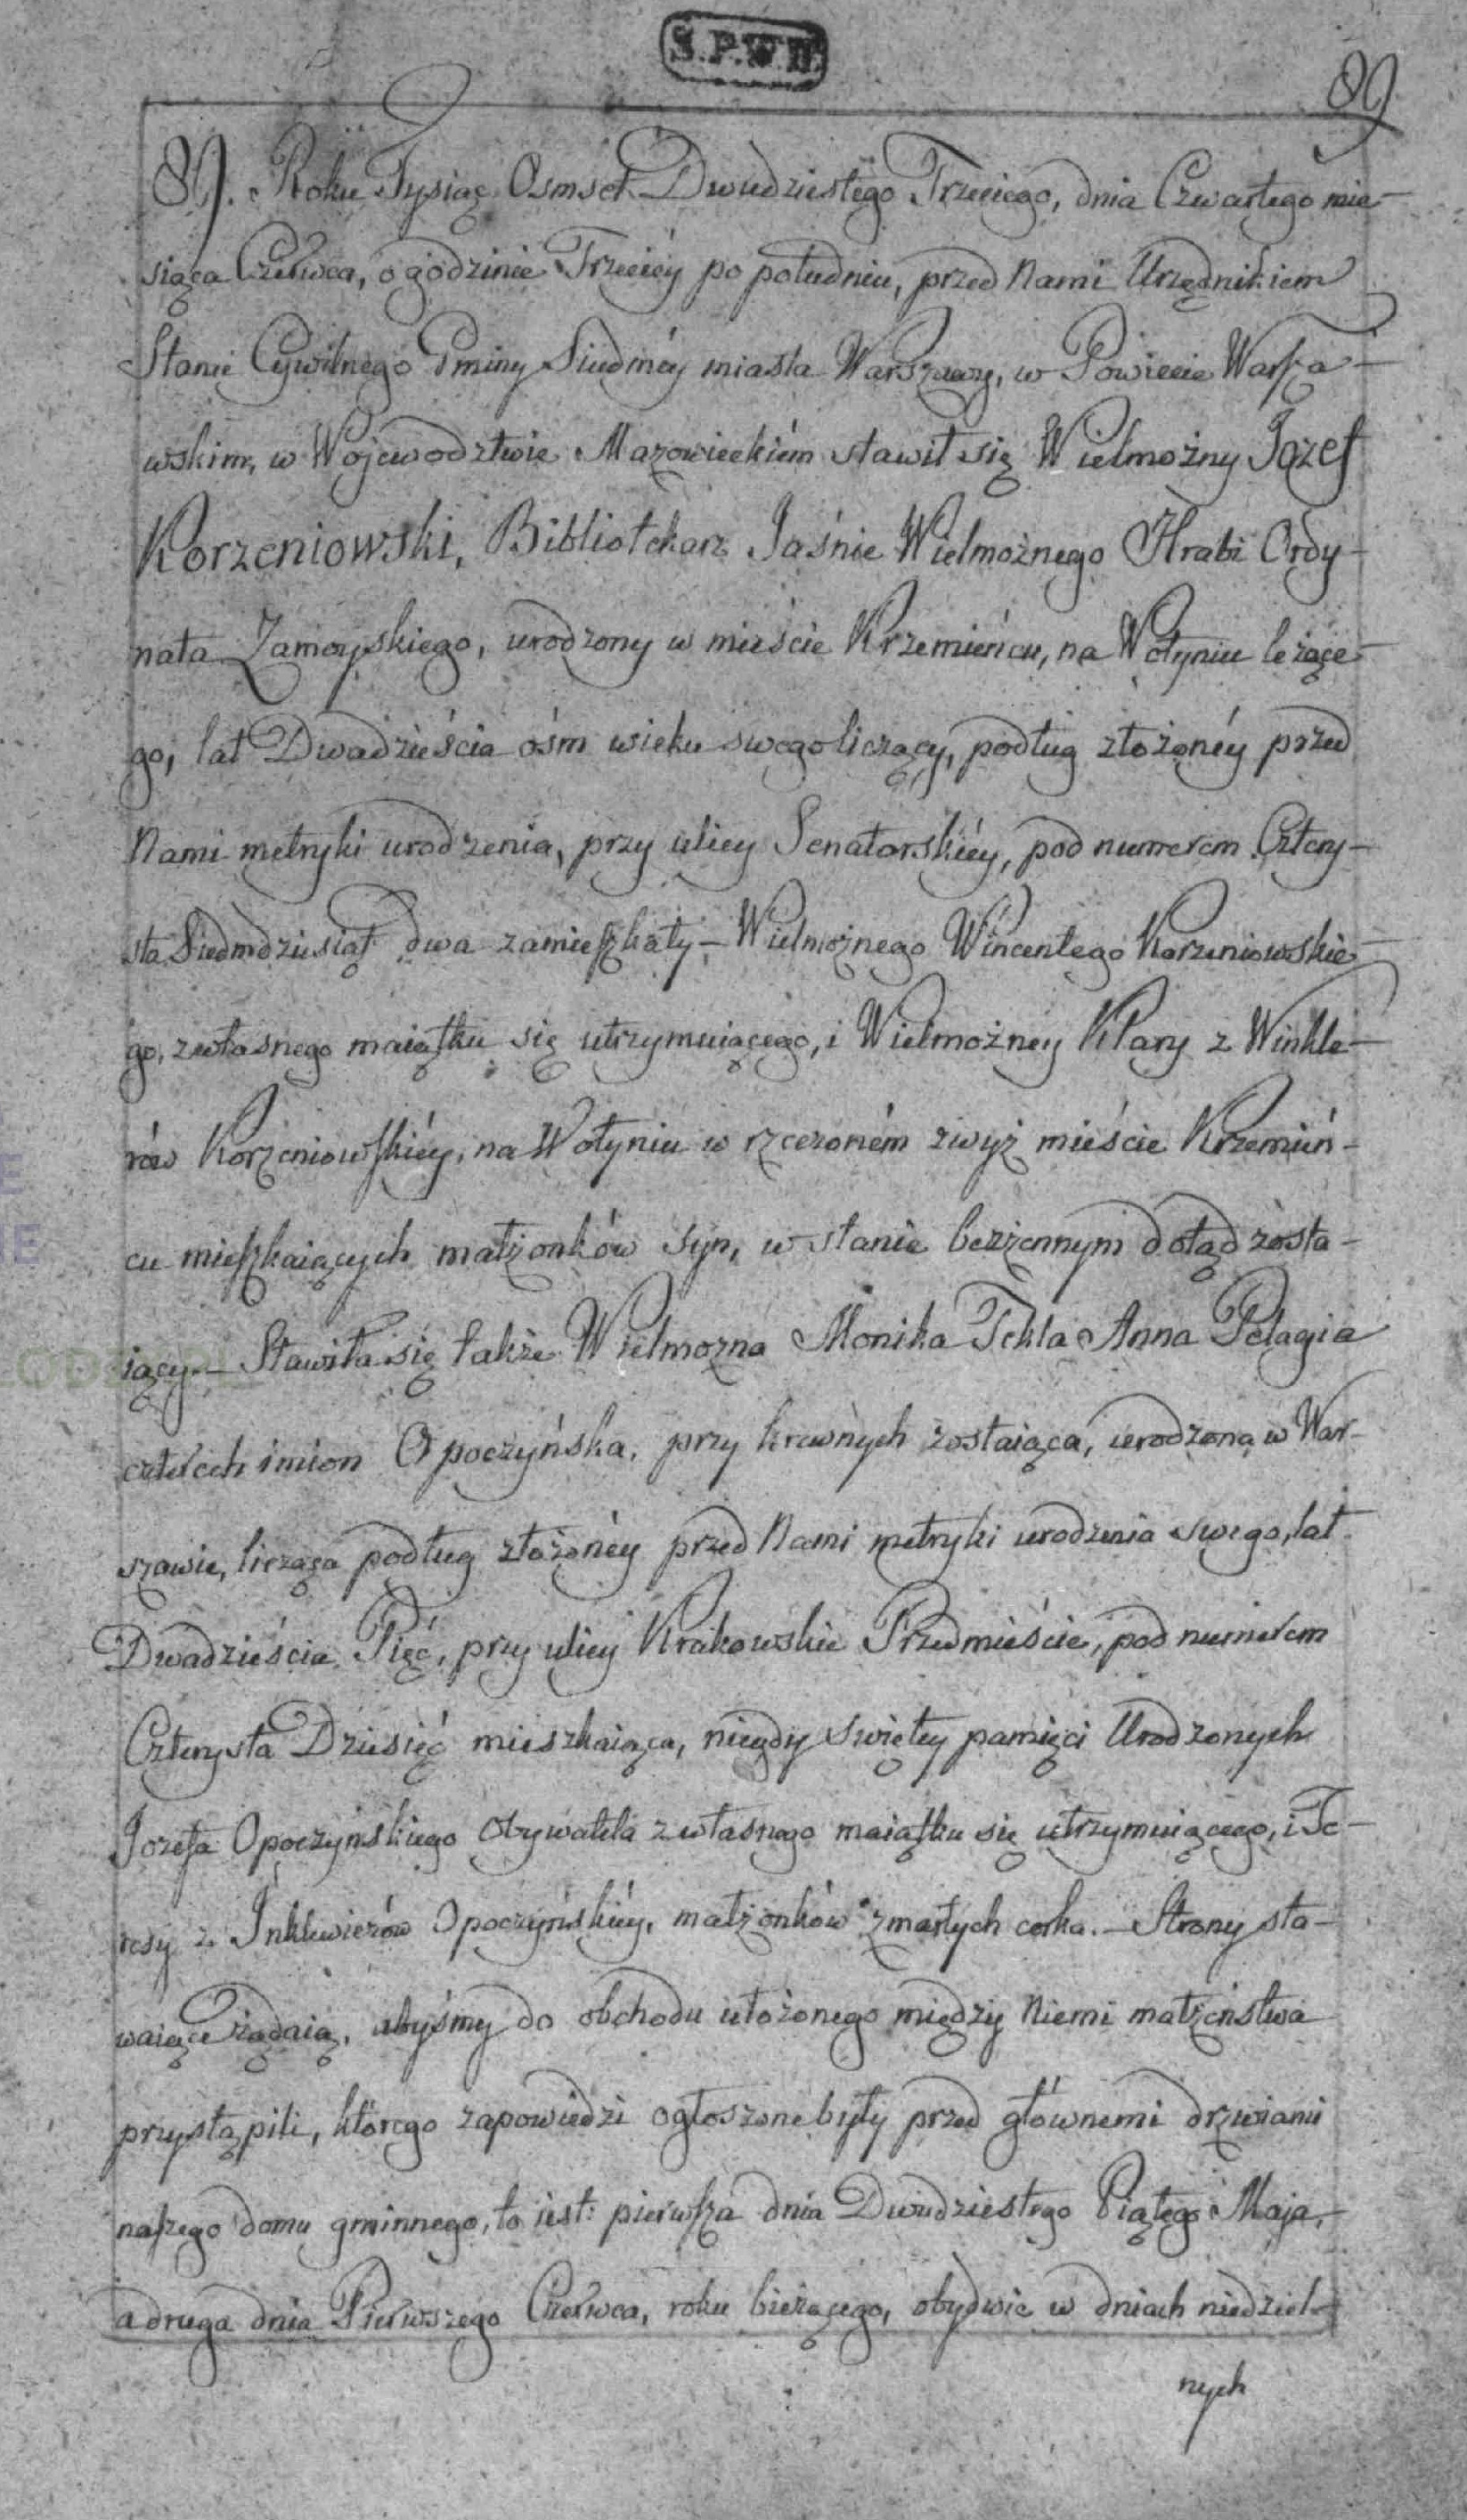 S.P.W.II.
89
89. Roku Tysiąc Osmset Dwudziestego Trzeciego, dnia Czwartego mie-
siąca Czerwca, o godzinie Trzeciéy po południu, przed Nami Urzędnikiem
Stanu Cywilnego Gminy Siudméy miasta Warszawy, w Powiecie Warsza-
wskim, w Wojewodztwie Mazowieckiém stawił się Wielmożny Jozef
Korzeniowski, Bibliotekarz Jaśnie Wielmożnego Hrabi Ordy-
nata Zamoyskiego, urodzony w mieście Krzemieńcu, na Wołyniu leżące-
go, lat Dwadzieścia ośm wieku swego liczący, podług złożonéy przed
Nami metryki urodzenia, przy ulicy Senatorskiéy, pod numerem Cztery-
sta Siedmdziesiąt dwa zamieszkały – Wielmożnego Wincentego Korzeniowskie-
go, z własnego maiątku się utrzymuiącego, i Wielmożney Klary z Winkle-
rów Korzeniowskiéy, na Wołyniu w rzeczoném zwyż mieście Krzemień-
cu mieszkaiących małżonków syn, w stanie bezżennym dotąd zosta-
iący. – Stawiła się także Wielmozna Monika Tekla Anna Pelagia
czterech imion Opoczyńska, przy krewnych zostaiąca, urodzona w War-
szawie, licząca podług złożonéy przed Nami metryki urodzenia swego, lat
Dwadzieścia Pięć, przy ulicy Krakowskie Przedmieście, pod numerem
Czterysta Dziesięć mieszkaiąca, niegdy swiętey pamięci Urodzonych
Jozefa Opoczyńskiego Obywatela z własnego maiątku się utrzymuiącego, i Te-
resy z Inklewierów Opoczyńskiéy, małżonków zmarłych corka. – Strony sta-
waiące żądaią, abyśmy do obchodu ułożonego między Niemi małżeństwa
przystąpili, którego zapowiedzi ogłoszone były przed głównemi drzwiami
naszego domu gminnego, to iest: pierwsza dnia Dwudziestego Piątego Maja,
a druga dnia Pierwszego Czerwca, roku bieżącego, obydwie w dniach niedziel-
nych